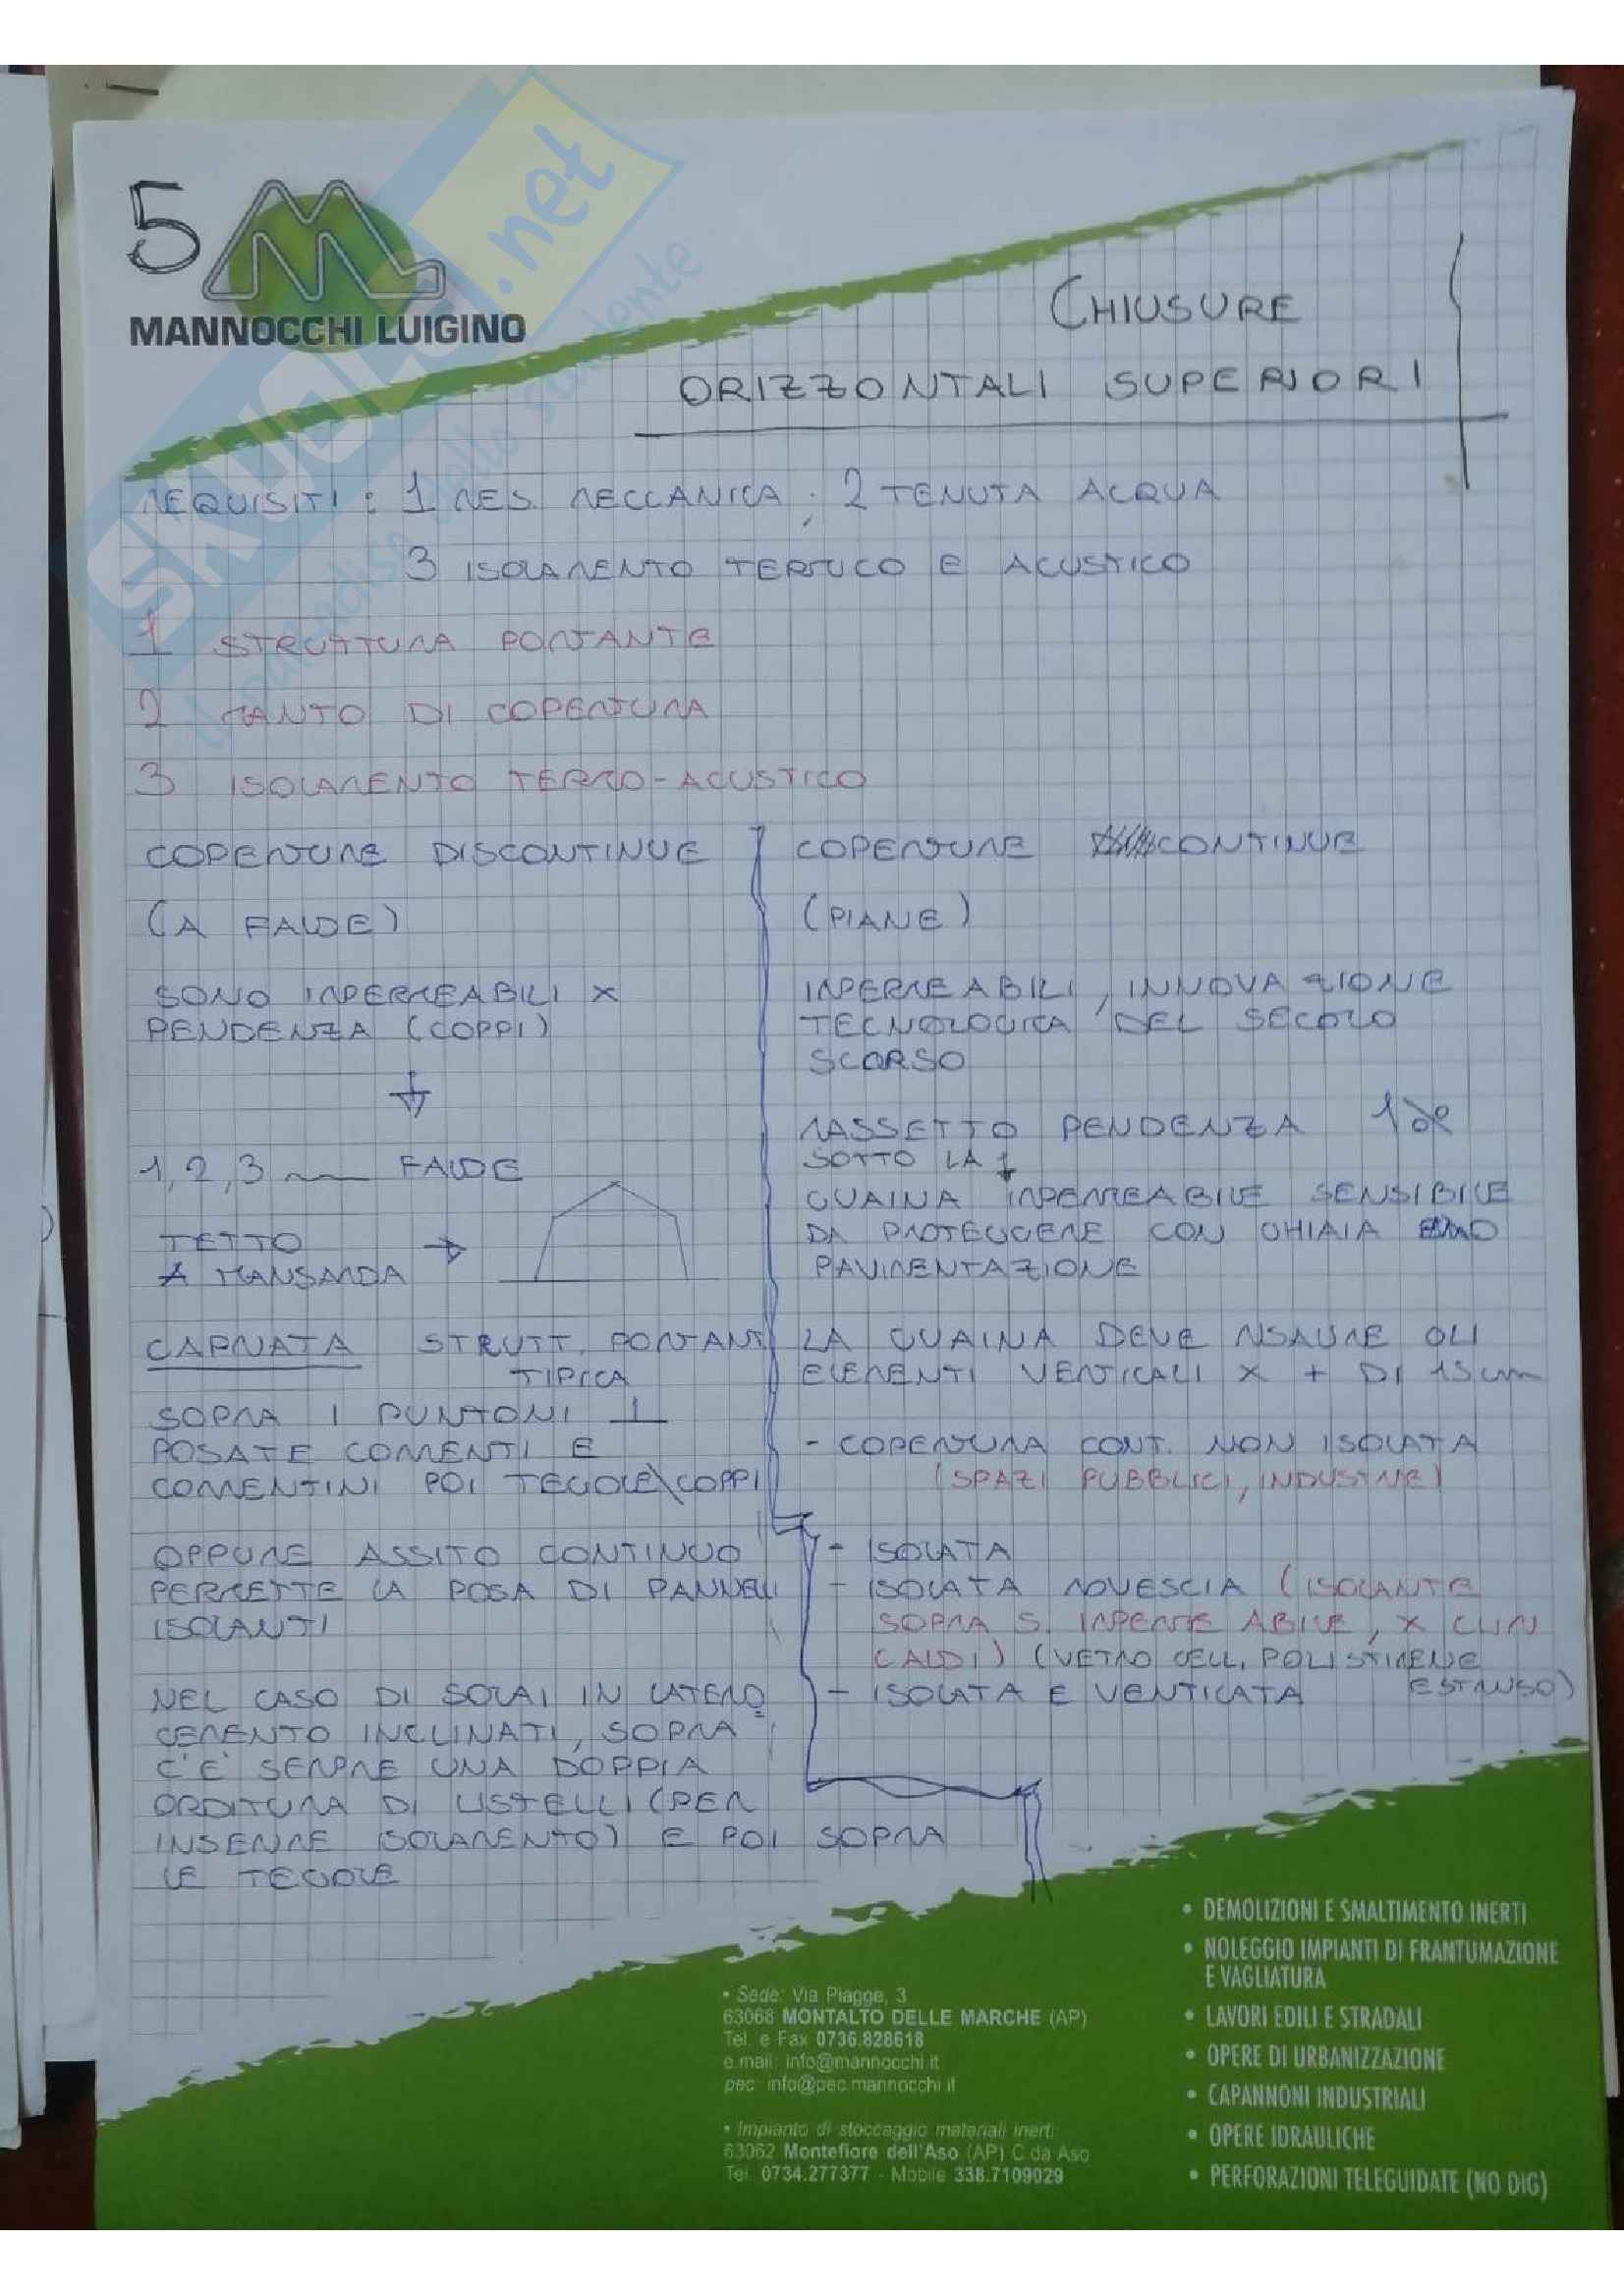 5
MANNOCCHI LUIGINO
SKUOLA.net
CHIUSURE
ORIZZONTALI SUPERIORI
REQUISITI: 1 RES. MECCANICA; 2 TENUTA ACQUA
3 ISOLAMENTO TERMICO E ACUSTICO
1 STRUTTURA PORTANTE
2 MANTO DI COPERTURA
3 ISOLAMENTO TERMO-ACUSTICO
COPERTURE DISCONTINUE
(A FALDE)
SONO IMPERMEABILI X
PENDENZA (COPPI)
1, 2, 3 FALDE
TETTO
A MANSARDA
CAPRIATA STRUTT. PORTANT
TIPICA
SOPRA I PUNTONI ⊥
POSATE CORRENTI E
CORRENTINI POI TEGOLE\COPPI
OPPURE ASSITO CONTINUO
PERMETTE LA POSA DI PANNELLI
ISOLANTI
NEL CASO DI SOLAI IN LATERO
CEMENTO INCLINATI, SOPRA
C'E' SEMPRE UNA DOPPIA
ORDITURA DI LISTELLI (PER
INSERIRE ISOLAMENTO) E POI SOPRA
LE TEGOLE
COPERTURE CONTINUE
(PIANE)
IMPERMEABILI, INNOVAZIONE
TECNOLOGICA DEL SECOLO
SCORSO
MASSETTO PENDENZA
SOTTO LA
GUAINA IMPERMEABILE SENSIBILE
DA PROTEGGERE CON GHIAIA
PAVIMENTAZIONE
LA GUAINA DEVE RISALIRE GLI
ELEMENTI VERTICALI X + DI 15 cm
- COPERTURA CONT. NON ISOLATA
(SPAZI PUBBLICI, INDUSTRIE)
- ISOLATA
- ISOLATA ROVESCIA (ISOLANTE
SOPRA S. IMPERMEABILE, X CLIMI
CALDI) (VETRO CELL, POLISTIRENE
ESTRUSO)
- ISOLATA E VENTILATA
• Sede: Via Piagge, 3
63068 MONTALTO DELLE MARCHE (AP)
Tel. e Fax 0736.828618
e.mail: info@mannocchi.it
pec: info@pec.mannocchi.it
• Impianto di stoccaggio materiali inerti:
63062 Montefiore dell'Aso (AP) C.da Aso
Tel. 0734.277377 - Mobile 338.7109029
• DEMOLIZIONI E SMALTIMENTO INERTI
• NOLEGGIO IMPIANTI DI FRANTUMAZIONE
E VAGLIATURA
• LAVORI EDILI E STRADALI
• OPERE DI URBANIZZAZIONE
• CAPANNONI INDUSTRIALI
• OPERE IDRAULICHE
• PERFORAZIONI TELEGUIDATE (NO DIG)